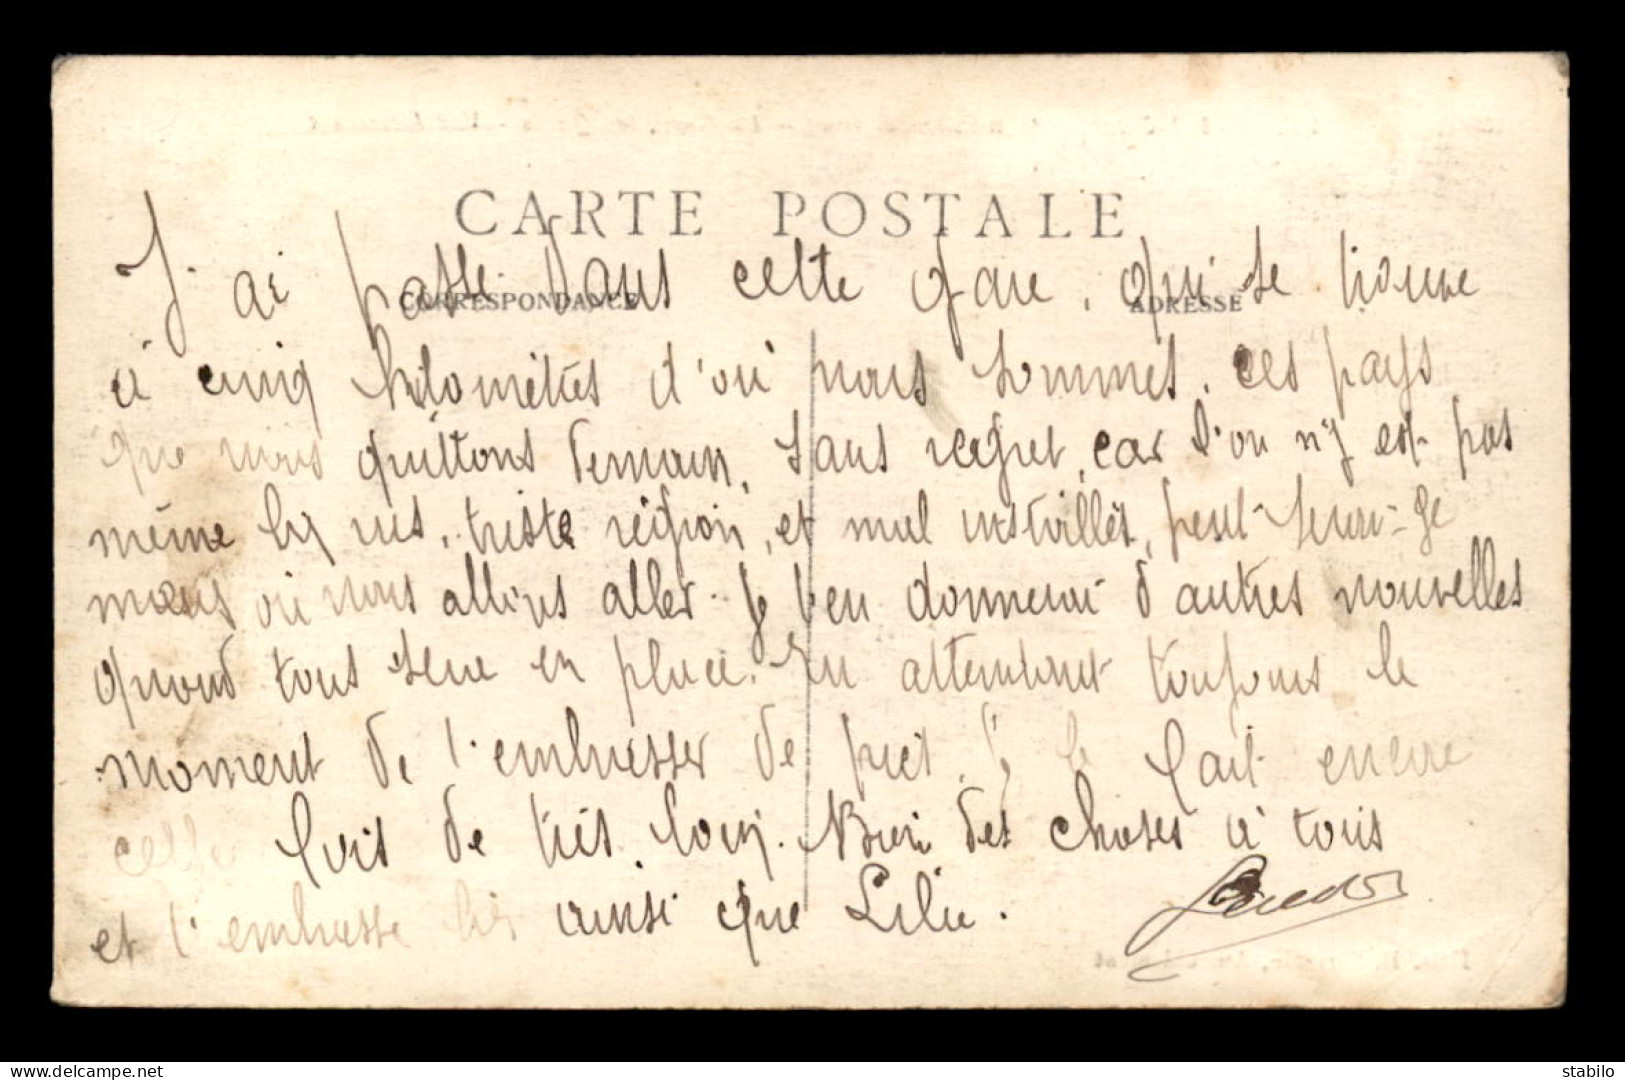 CARTE POSTALE
CORRESPONDANCE
ADRESSE
J'ai passé dans cette gare, qui se trouve
à cinq kilomètres d'où nous sommes. ces pays
que nous quittons demain, sans regret, car l'on n'y est pas
même triste région, et mal peut-
où nous allons aller. Je t'en donnerai d'autres nouvelles
quand tous sera en place. En attendant toujours le
moment de t'embrasser de près, je le fait encore
cette fois de très loin. Bien des choses à tous
et t'embrasse bien ainsi que Lilie.
stabilo